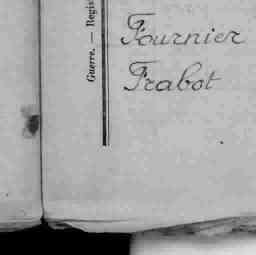 Guerre. — Regis
Fournier
Frabot